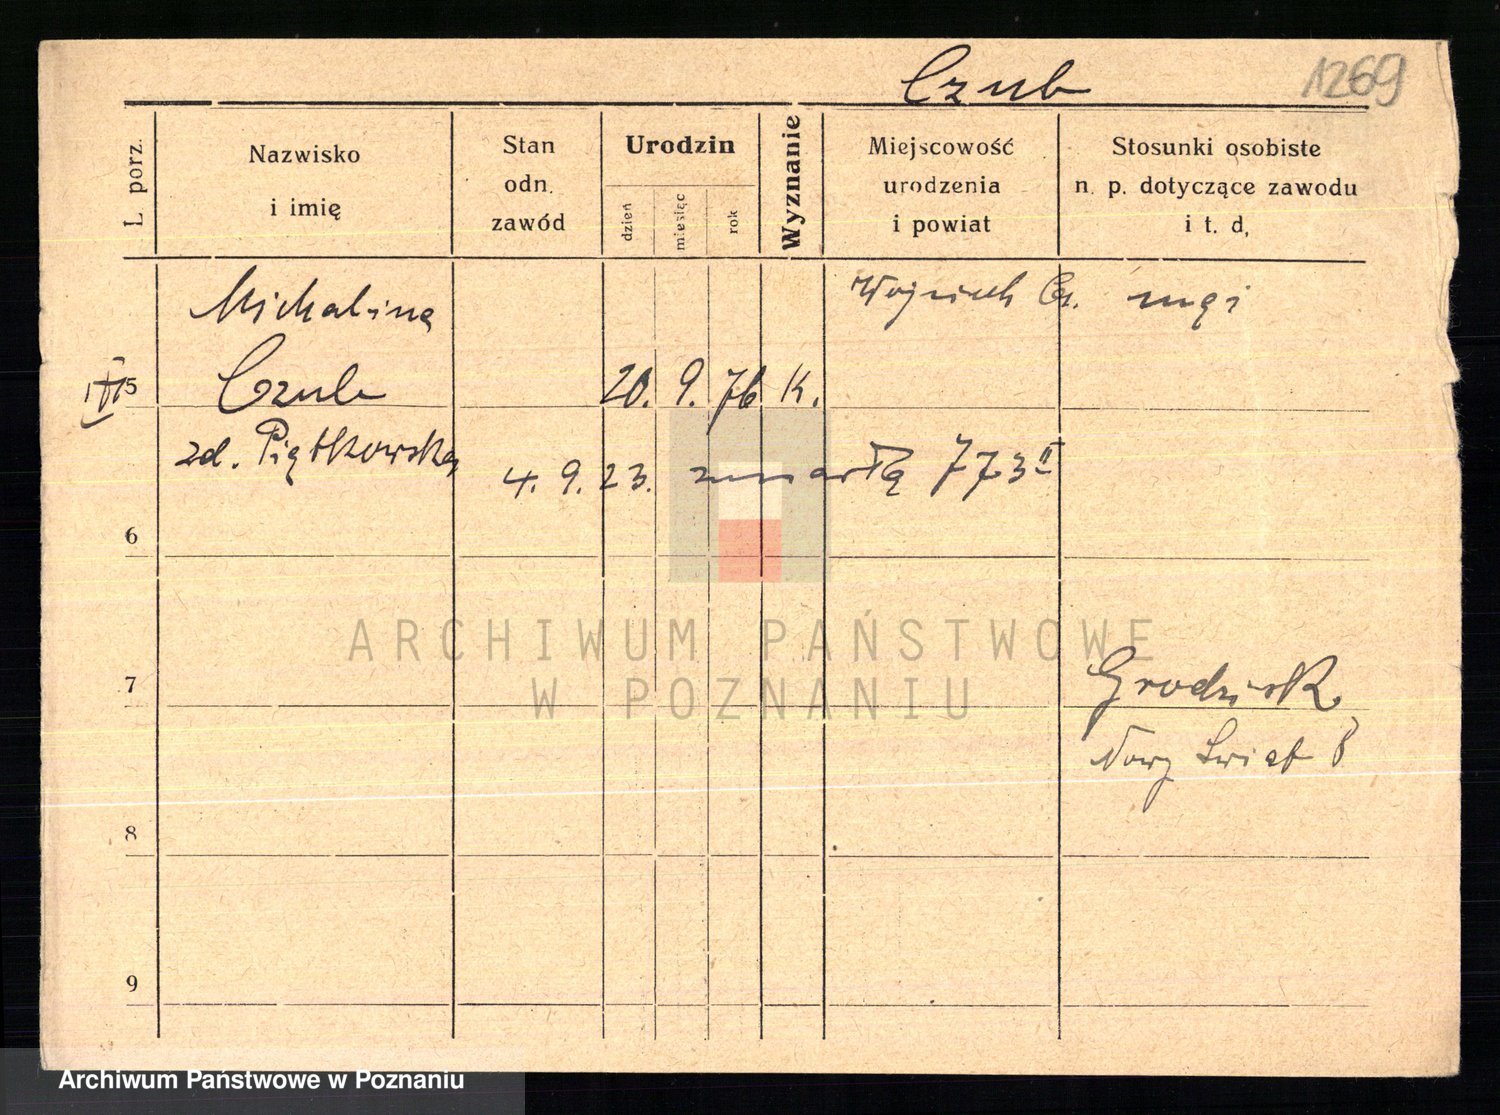 Czub
1269
L porz.
Nazwisko
i imię
Stan
odn.
zawód
Urodzin
dzień
miesięc
rok
Wyznanie
Miejscowość
urodzenia
i powiat
Stosunki osobiste
n. p. dotyczące zawodu
i t. d,
Michalina
Wojciech Cz. mąż
5
Czub
20. 9. 76 K.
zd. Piątkowska
4. 9. 23. zmarła 773 II
6
7
Grodzisk
Nowy Świat 8
8
9
ARCHIWUM PAŃSTWOWE
W POZNANIU
Archiwum Państwowe w Poznaniu